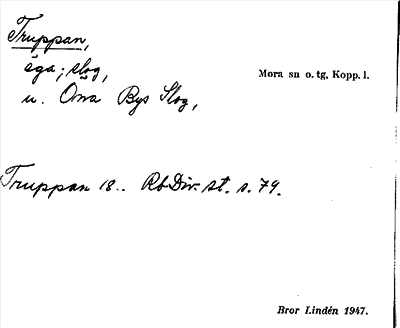 Truppan,
äga; slog,
Mora sn o. tg, Kopp. l.
u. Oxna Bys Slog,
Truppan 18.. RbDiv. st. s. 79.
Bror Lindén 1947.